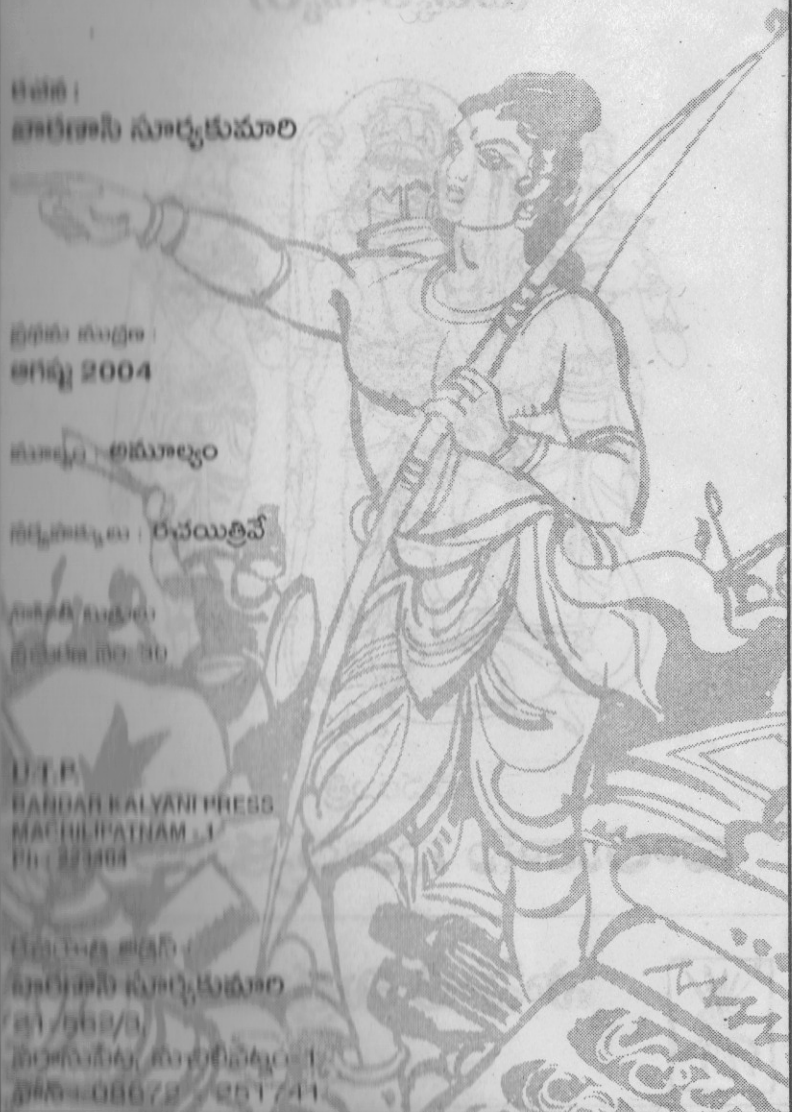 రచన :
వారణాసి సూర్యకుమారి
ప్రథమ ముద్రణ :
ఆగష్టు 2004
మూల్యం : అమూల్యం
సర్వహక్కులు : రచయిత్రివే
ప్రచురణ నం. 30
D.T.P.
BANDAR KALYANI PRESS
MACHILIPATNAM - 1
Ph :
రచయిత్రి అడ్రస్ :
వారణాసి సూర్యకుమారి
మచిలీపట్నం-1
ఫోన్ : 08672 - 251741